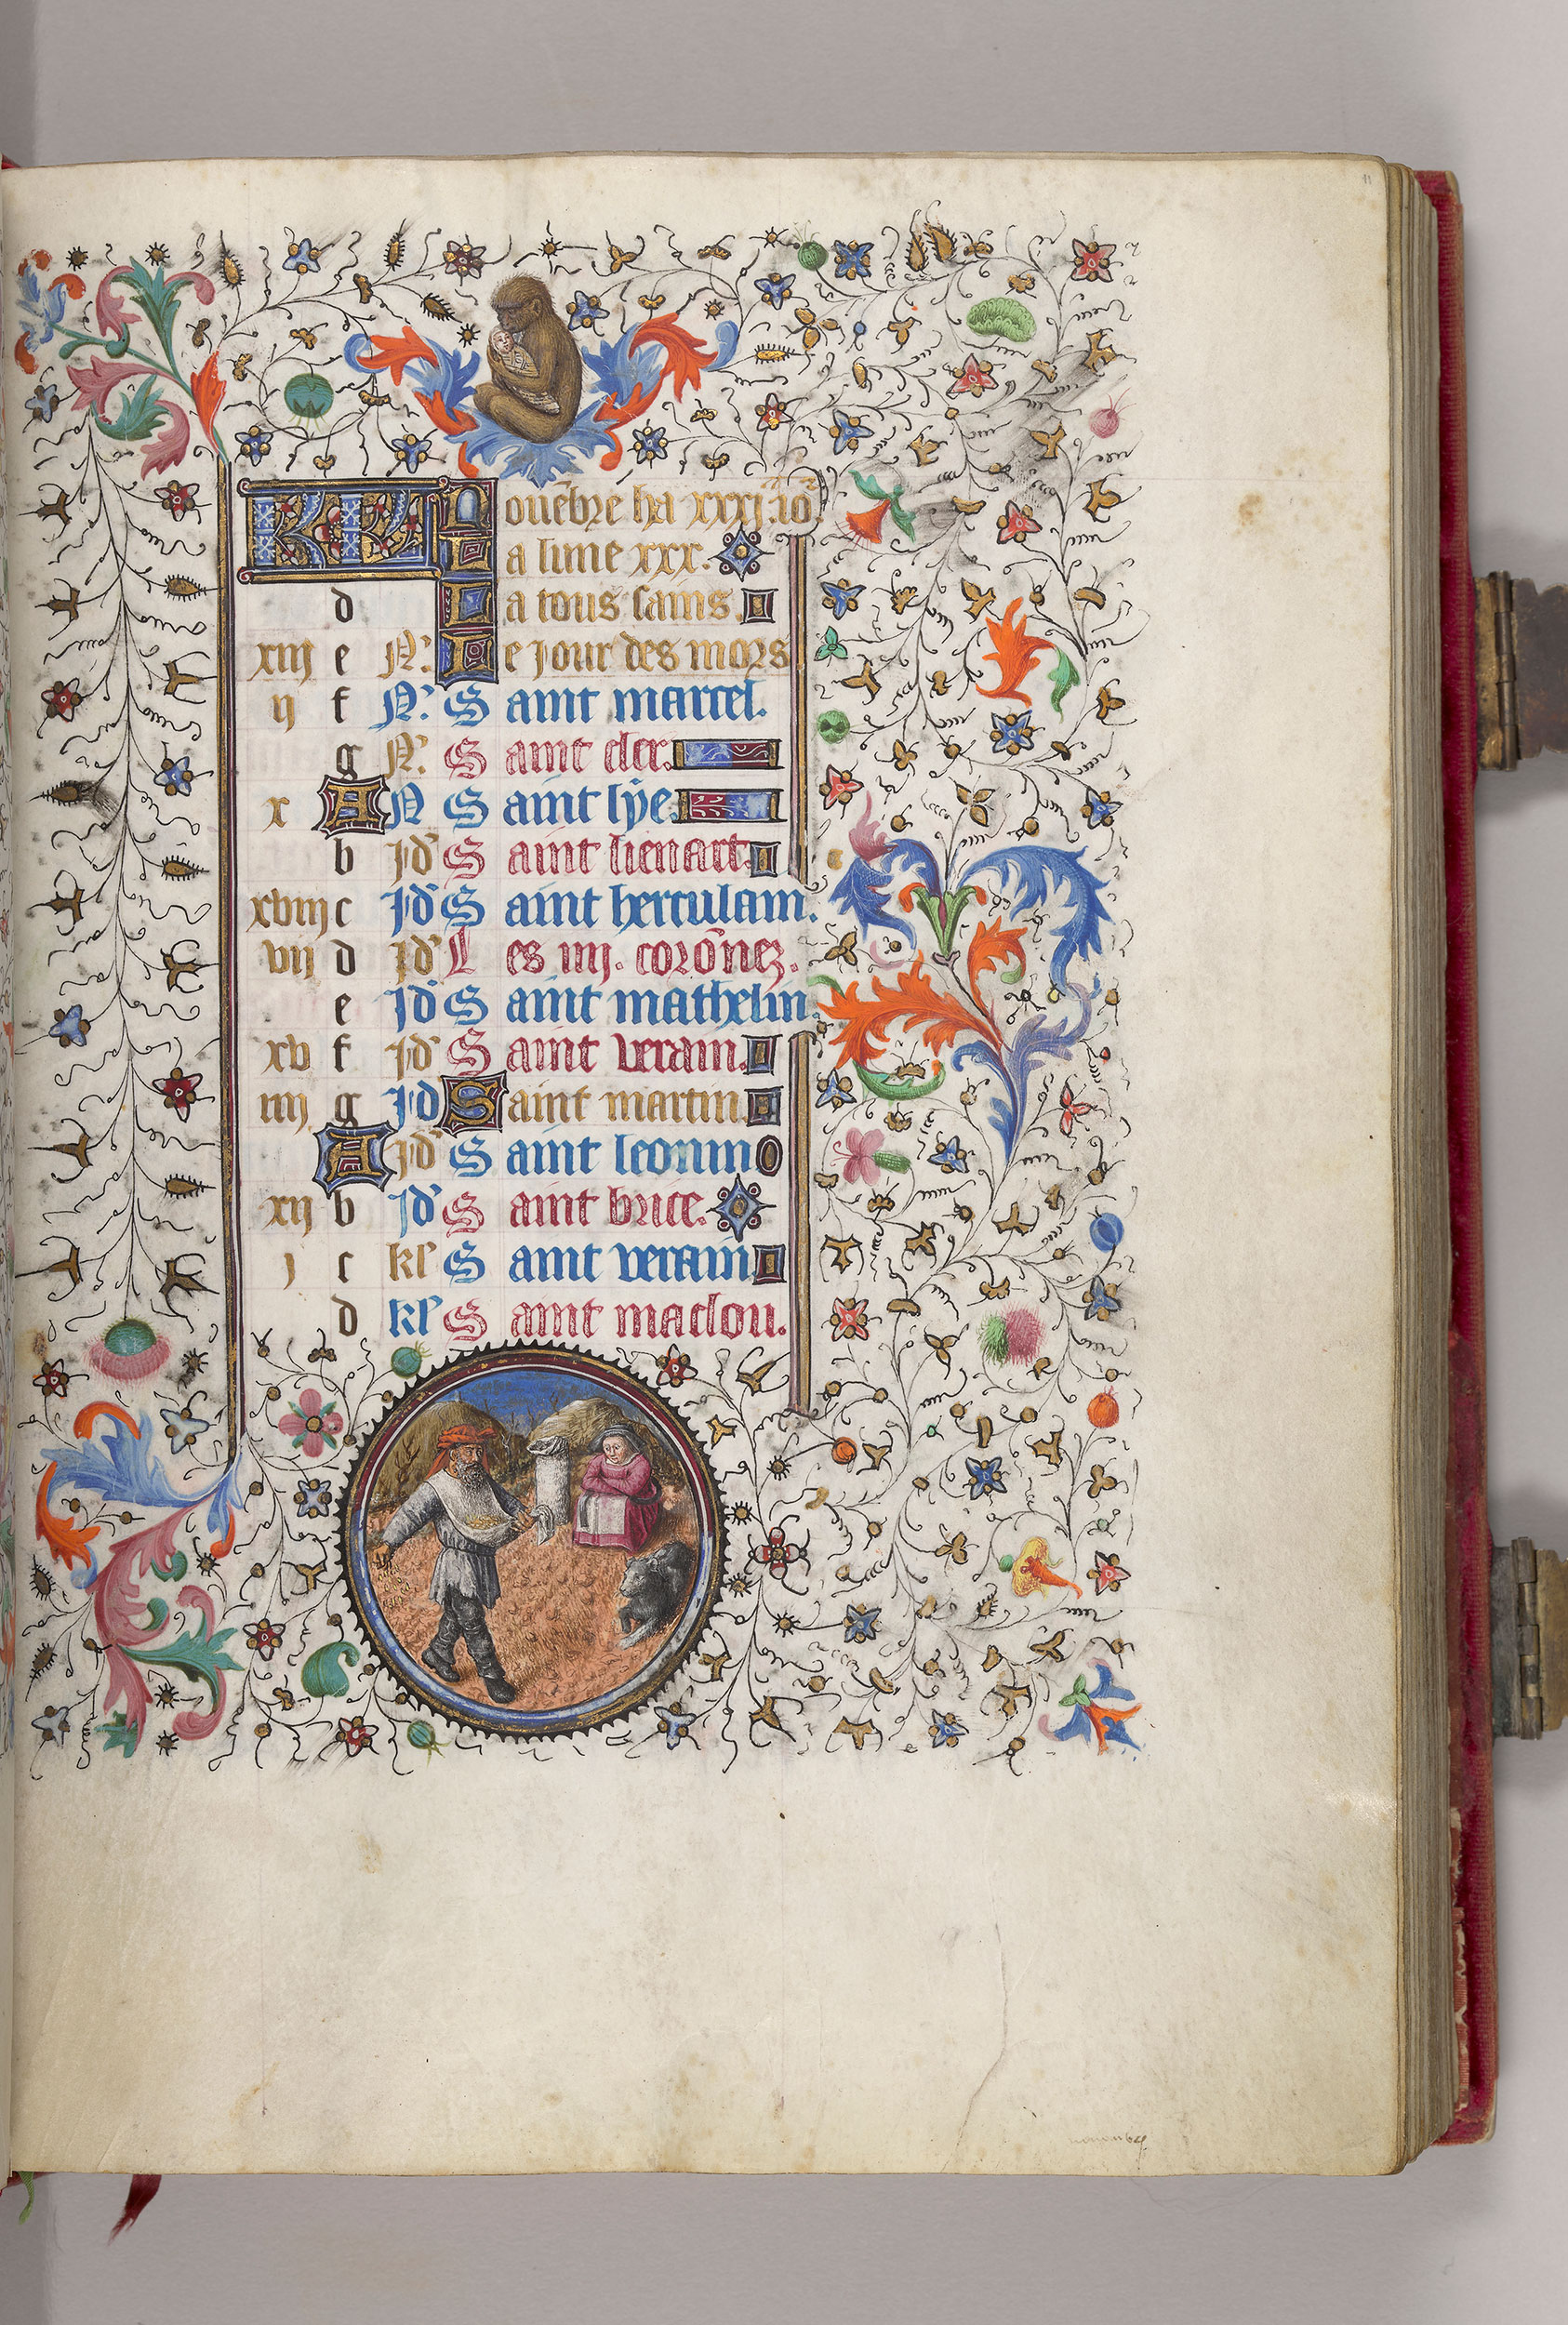 11
KL Nouēbre ha xxxj. io.
La lune xxx.
d La tous sains.
xiij e N. Le jour des mors
ij f N. Saint marcel.
g N. Saint cler.
x A N Saint lye.
b Jd Saint lienart.
xviij c Jd Saint herculain.
vij d Jd Les iiij. corōnez.
e Jd Saint mathelin
xv f Jd Saint verain.
iiij g Jd Saint martin.
A Jd Saint leonin
xij b Jd Saint brice.
j c kl Saint verain
d kl Saint maclou.